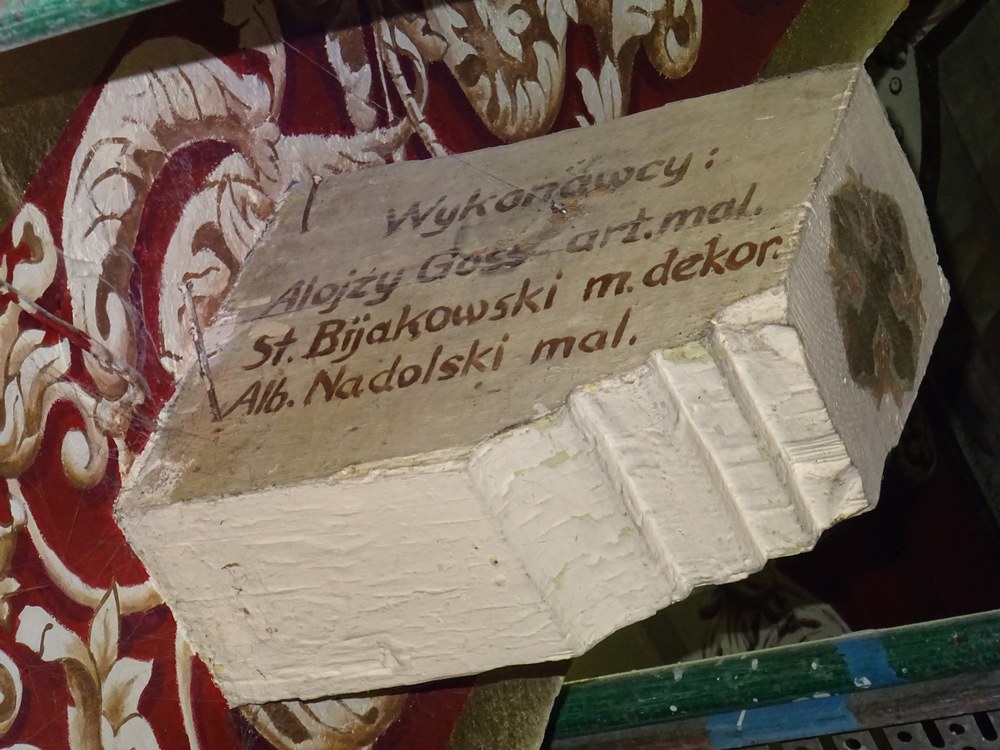 Wykonawcy:
Alojży Goss art. mal.
St. Bijakowski m. dekor.
Alb. Nadolski mal.